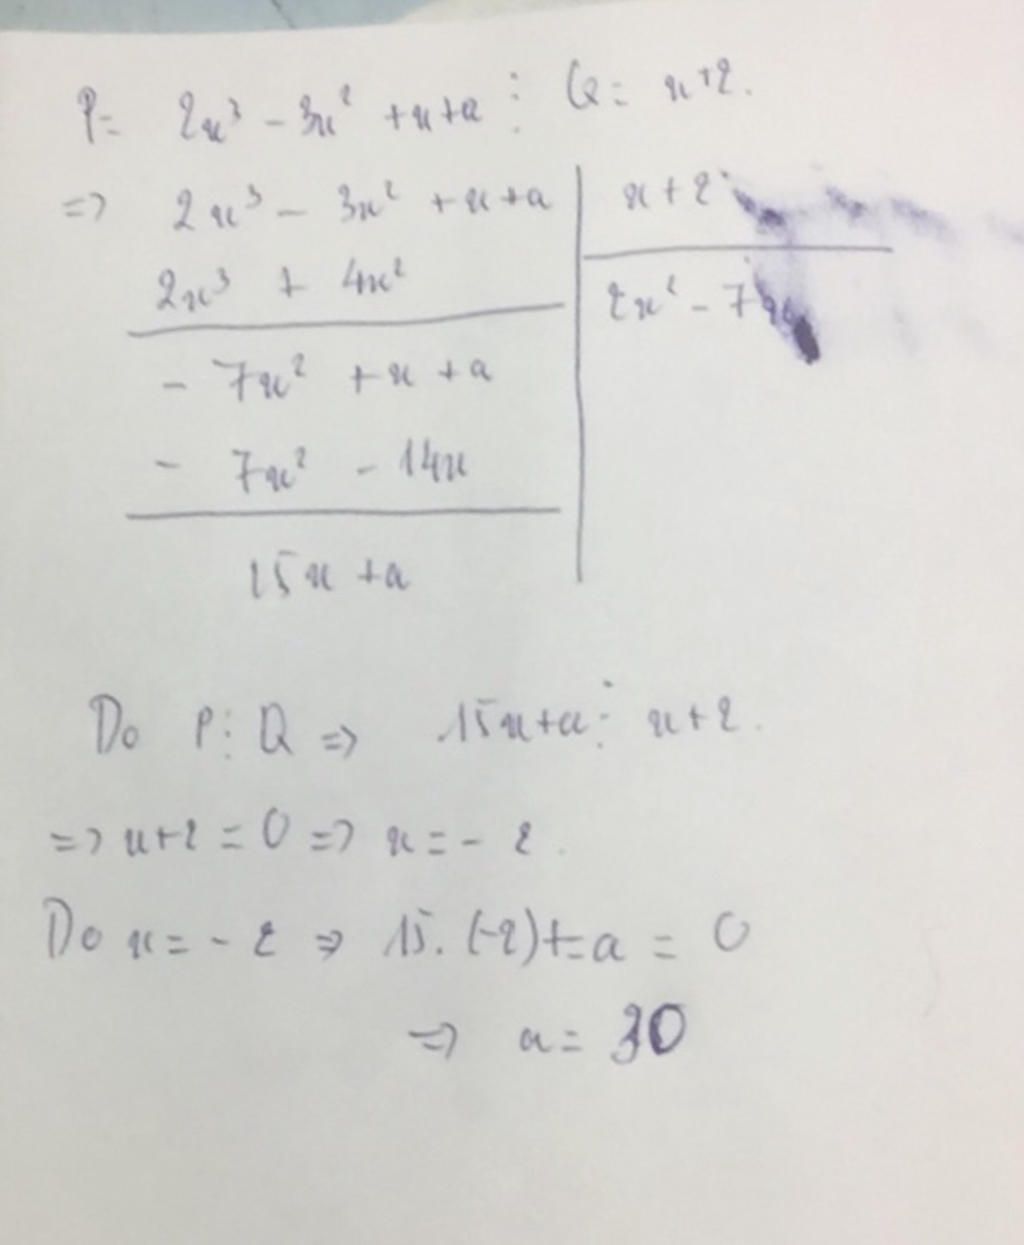 P= 2x³ - 3x² + x + a ⋮ Q = x+2.
=> 2x³ - 3x² + x + a | x + 2
2x³ + 4x² | 2x² - 7x
- 7x² + x + a
- 7x² - 14x
15x + a
Do P ⋮ Q => 15x+a ⋮ x+2.
=> x+2 = 0 => x = - 2.
Do x = - 2 => 15. (-2) + a = 0
=> a = 30